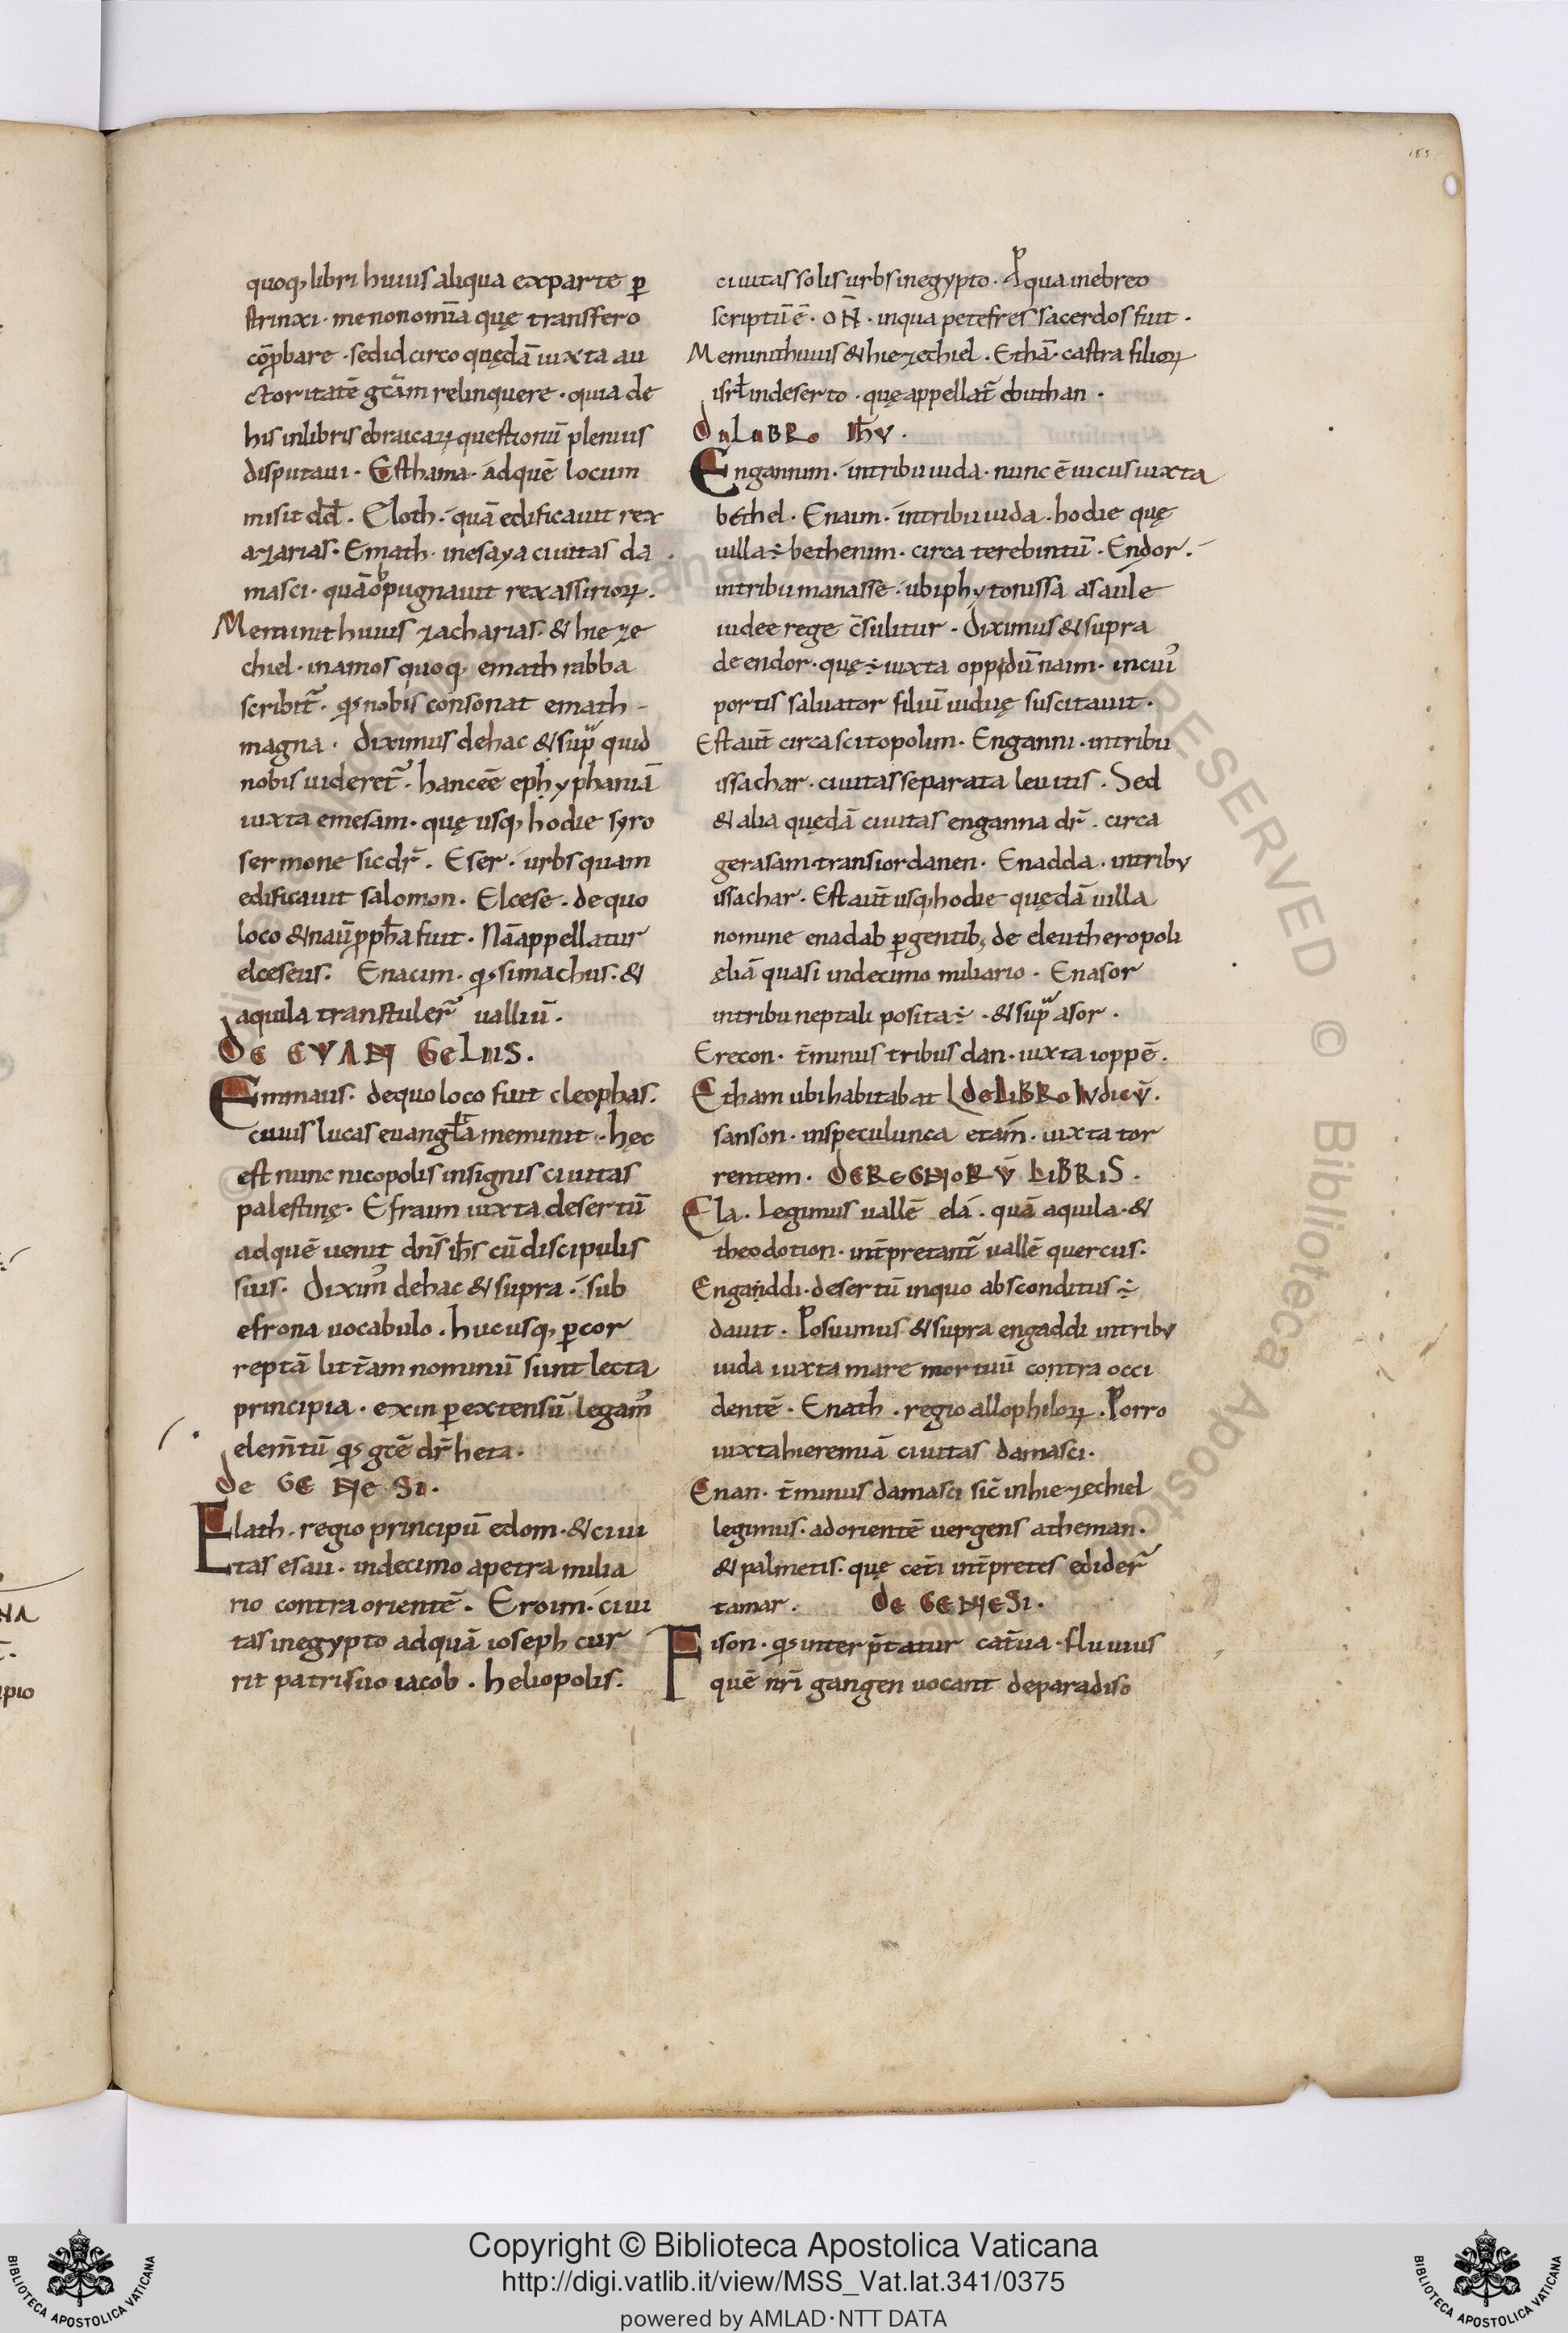 185
quoq; libri huius aliqua ex parte ꝑ
strinxi · me non om̄ia quę transfero
cōꝓbare · sed idcirco quędā iuxta au
ctoritatē gcām relinquere · quia de
his in libris ebraicaꝝ questionū plenius
disputaui · Esthama · ad quē locum
misit dd̄ · Eloth · quā edificauit rex
azarias · Emath · in esaya ciuitas da
masci · quā obpugnauit rex assirioꝝ ·
Meminit huius zacharias · & hieze
chiel · in amos quoq; emath rabba
scribit᷑ · qđ nobis consonat emath
magna · Diximus de hac & sup̄ quid
nobis uideret᷑ · hanc eē ephyphaniā
iuxta emesam · quę usq; hodie syro
sermone sic dr̄ · Eser · urbs quam
edificauit salomon · Elcese · de quo
loco & naū ꝓph̄a fuit · Nā appellatur
elceseus · Enacim · qđ simachus · &
aquila transtuler᷑ uallıū ·
DE EVANGELIIS ·
Emmaus · de quo loco fuit cleophas ·
cuius lucas euangl̄ia meminit · hęc
est nunc nicopolis insignis ciuitas
palestinę · Efraim iuxta desertū
ad quē uenit dn̄s ih̄s cū discipulis
suis · Dixim᷒ de hac & supra · sub
efrona uocabulo · hucusq; ꝑ cor
reptā litt̄am nominū sunt lecta
principia · exin ꝑ extensū legam᷒
elem̄tū qđ gcē dr̄ heta ·
De GENESI ·
Elath · regio principū edom · & ciui
tas esau · in decimo a petra milia
rio contra orientē · Eroim · ciui
tas in egypto ad quā ioseph cur
rit patri suo iacob · heliopolis ·
ciuitas solis urbs in egypto · ꝓ qua in ebreo
scriptū ē · ON̄ · in qua petefres sacerdos fuit ·
Meminit huius & hiezechiel · Ethā · castra filioꝝ
isrl̄ in deserto · quę appellat̄ ebuthan ·
De LIBRO IH̄V ·
Engannim · in tribu iuda · nunc ē uicus iuxta
bethel · Enaim · in tribu iuda · hodie quę
uilla ÷ bethenim · circa terebintū · Endor ·
in tribu manasse · ubi phytonissa a saule
iudee rege c̄sulitur · Diximus & supra
de endor · quę ÷ iuxta oppidū naim · in cui᷒
portis saluator filiū uiduę suscitauit ·
Est aut̄ circa scitopolim · Enganni · in tribu
issachar · ciuitas separata leuitis · Sed
& alia quędā ciuitas enganna dr̄ · circa
gerasam trans iordanen · Enadda · in tribu
issachar · Est aut̄ usq; hodie quędā uilla
nomine enadab ꝑgentib; de eleutheropoli
ęliā quasi in decimo miliario · Enasor
in tribu neptali posita ÷ · & sup̄ asor ·
Erecon · t̄minus tribus dan · iuxta ioppē ·
Etham ubi habitabat DE LIBRO IVDICV̄ ·
sanson · in speculunca etam · iuxta tor
rentem · DE REGNORV̄ LIBRIS ·
Ela · Legimus uallē elá · quā aquila · &
theodotion · int̄pretant᷑ uallē quercus ·
Enganddi · desertū in quo absconditus ÷
dauit · Posuimus & supra engaddi in tribu
iuda iuxta mare mortuū contra occi
dentē · Enath · regio allophiloꝝ · Porro
iuxta hieremiā ciuitas damasci ·
Enan · t̄minus damasci sic̄ in hiezechiel
legimus · ad orientē uergens atheman ·
& palmetis · quę cet̄i int̄pretes edider᷑
tamar · DE GENESI ·
Fison · qđ inter p̄tatur cat̄ua · fluuius
quē nr̄i gangen uocant de paradiso
Copyright © Biblioteca Apostolica Vaticana
http://digi.vatlib.it/view/MSS_Vat.lat.341/0375
powered by AMLAD·NTT DATA
BIBLIOTECA APOSTOLICA VATICANA
BIBLIOTECA APOSTOLICA VATICANA